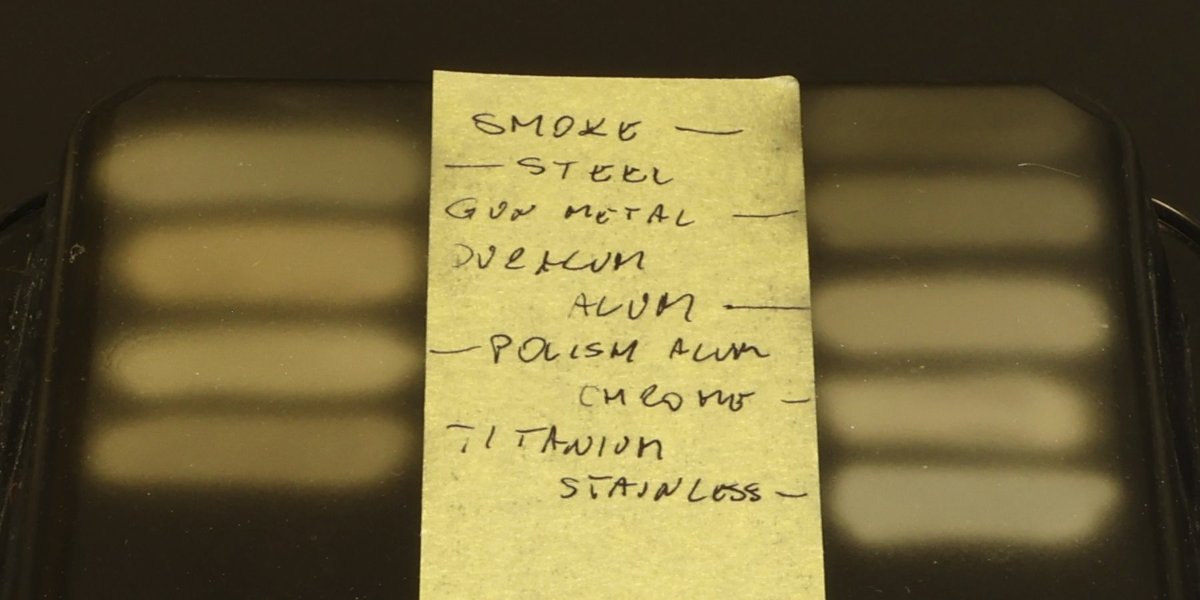 SMOKE —
— STEEL
GUN METAL —
DURALUM
ALUM —
— POLISH ALUM
CHROME —
TITANIUM
STAINLESS —